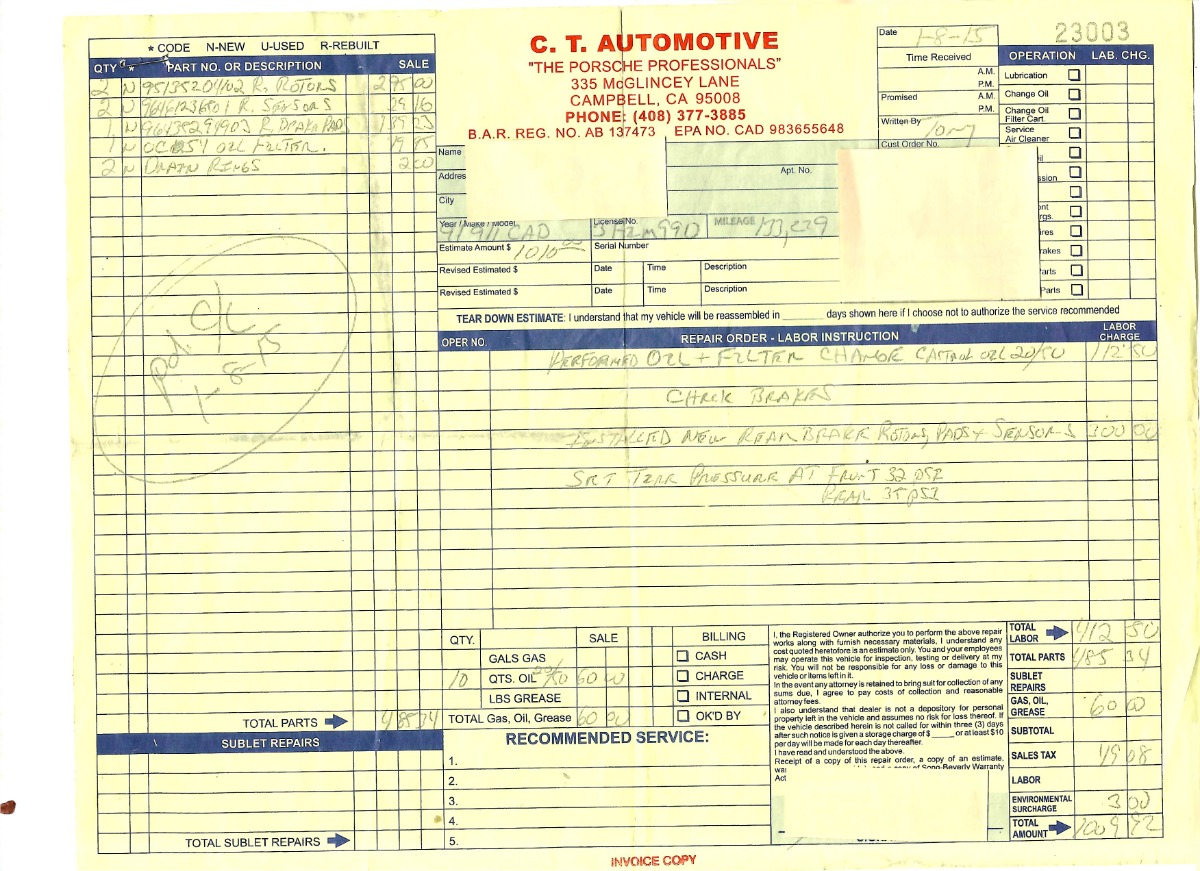 * CODE N-NEW U-USED R-REBUILT
QTY * PART NO. OR DESCRIPTION SALE
2 N 95135204102 R. ROTORS 295 00
2 N R. SENSORS 29 16
1 N R. BRAKE PADS 139 33
1 N OIL FILTER. 19 85
2 N DRAIN RINGS 2 00
pd. C/C
1-8-15
TOTAL PARTS 485 34
SUBLET REPAIRS
TOTAL SUBLET REPAIRS
C. T. AUTOMOTIVE
"THE PORSCHE PROFESSIONALS"
335 McGLINCEY LANE
CAMPBELL, CA 95008
PHONE: (408) 377-3885
B.A.R. REG. NO. AB 137473 EPA NO. CAD 983655648
Date 1-8-15
Time Received
A.M.
P.M.
Promised A.M.
P.M.
Written By Tony
Cust Order No.
23003
OPERATION LAB. CHG.
Lubrication
Change Oil
Change Oil
Filter Cart.
Service
Air Cleaner
Name
Addres
Apt. No.
City
Year / Make / Model 91 911 CAB
License No.
MILEAGE 133,239
Estimate Amount $ 1010 00
Serial Number
Revised Estimated $ Date Time Description
Revised Estimated $ Date Time Description
TEAR DOWN ESTIMATE: I understand that my vehicle will be reassembled in ______ days shown here if I choose not to authorize the service recommended
OPER NO. REPAIR ORDER - LABOR INSTRUCTION LABOR CHARGE
PERFORMED OIL + FILTER CHANGE CASTROL OIL 20/50 112 50
CHECK BRAKES
INSTALLED NEW REAR BRAKE ROTORS, PADS + SENSORS 300 00
SET TIRE PRESSURE AT FRONT 32 PSI
REAR 35 PSI
QTY. SALE
GALS GAS
10 QTS. OIL 20/50 60 00
LBS GREASE
TOTAL Gas, Oil, Grease 60 00
BILLING
CASH
CHARGE
INTERNAL
OK'D BY
RECOMMENDED SERVICE:
1.
2.
3.
4.
5.
I, the Registered Owner authorize you to perform the above repair
works along with furnish necessary materials, I understand any
cost quoted heretofore is an estimate only. You and your employees
may operate this vehicle for inspection, testing or delivery at my
risk. You will not be responsible for any loss or damage to this
vehicle or items left in it.
In the event any attorney is retained to bring suit for collection of any
sums due, I agree to pay costs of collection and reasonable
attorney fees.
I also understand that dealer is not a depository for personal
property left in the vehicle and assumes no risk for loss thereof. If
the vehicle described herein is not called for within three (3) days
after such notice is given a storage charge of $ _____ or at least $10
per day will be made for each day thereafter.
I have read and understood the above.
Receipt of a copy of this repair order, a copy of an estimate,
TOTAL LABOR 412 50
TOTAL PARTS 485 34
SUBLET REPAIRS
GAS, OIL, GREASE 60 00
SUBTOTAL
SALES TAX 49 08
LABOR
ENVIRONMENTAL SURCHARGE 3 00
TOTAL AMOUNT 1009 92
INVOICE COPY